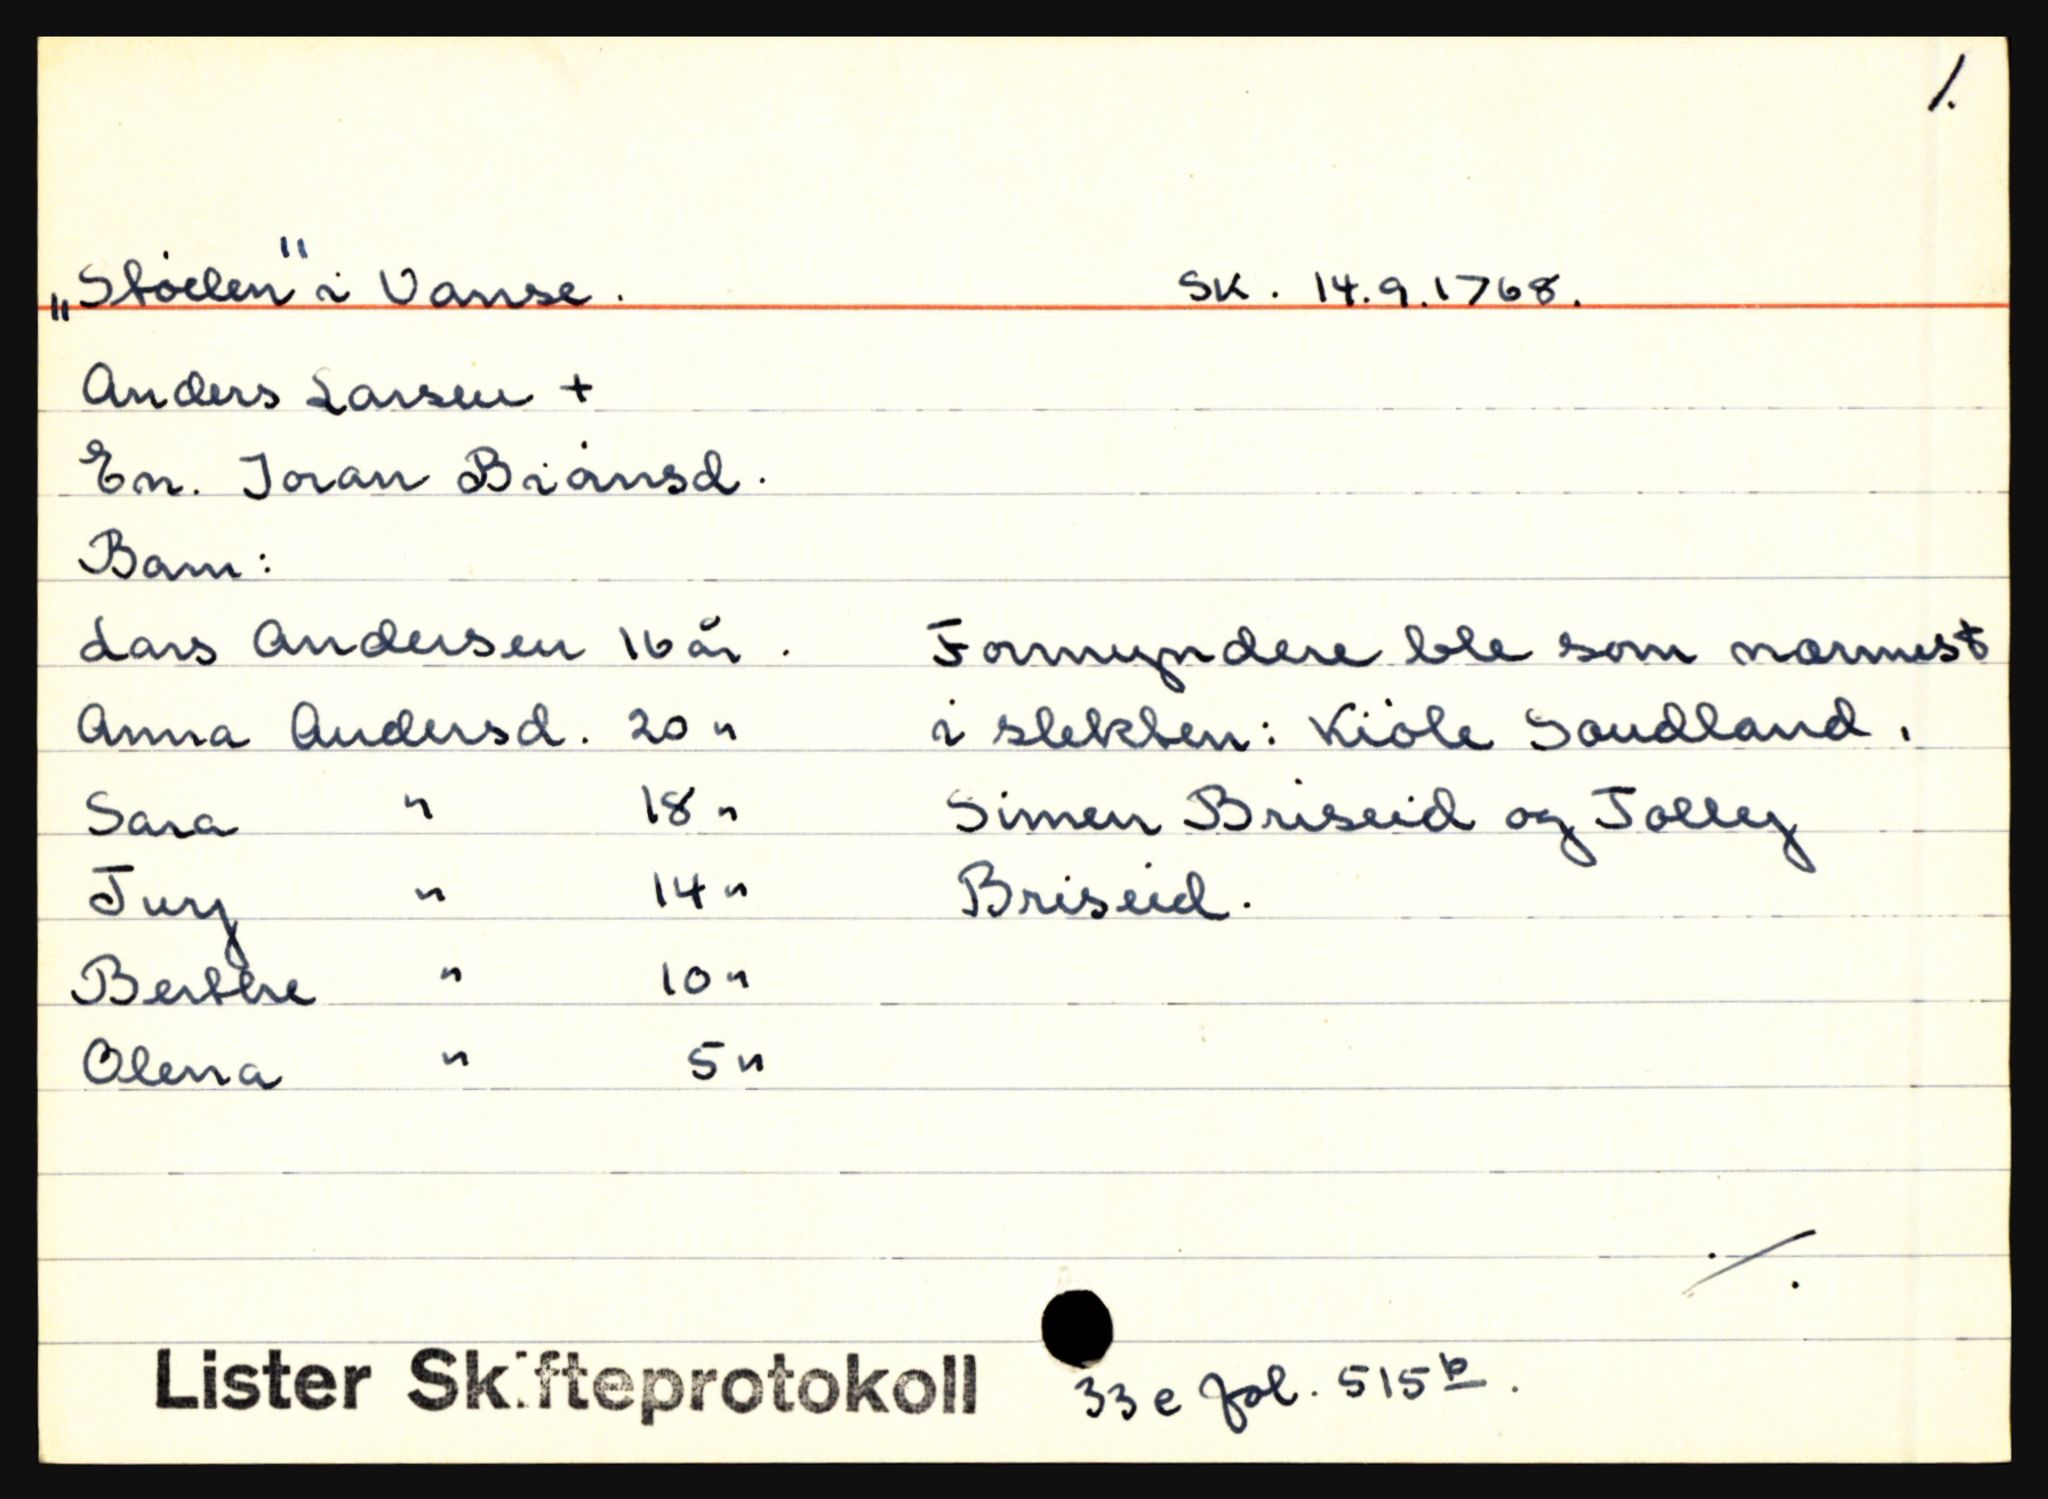 1.
„Støelen" i Vanse. SK. 14.9.1768.
Anders Larsen +
En. Joran Biørnsd.
Barn:
Lars Andersen 16 år.
Anna Andersd. 20 "
Sara " 18 "
Jury " 14 "
Berthe " 10 "
Olena " 5 "
Formyndere ble som nærmest
i slekten: Kiøle Soudland.
Simen Briseid og Tolley
Briseid.
./.
Lister Skifteprotokoll 33 e fol. 515 b.